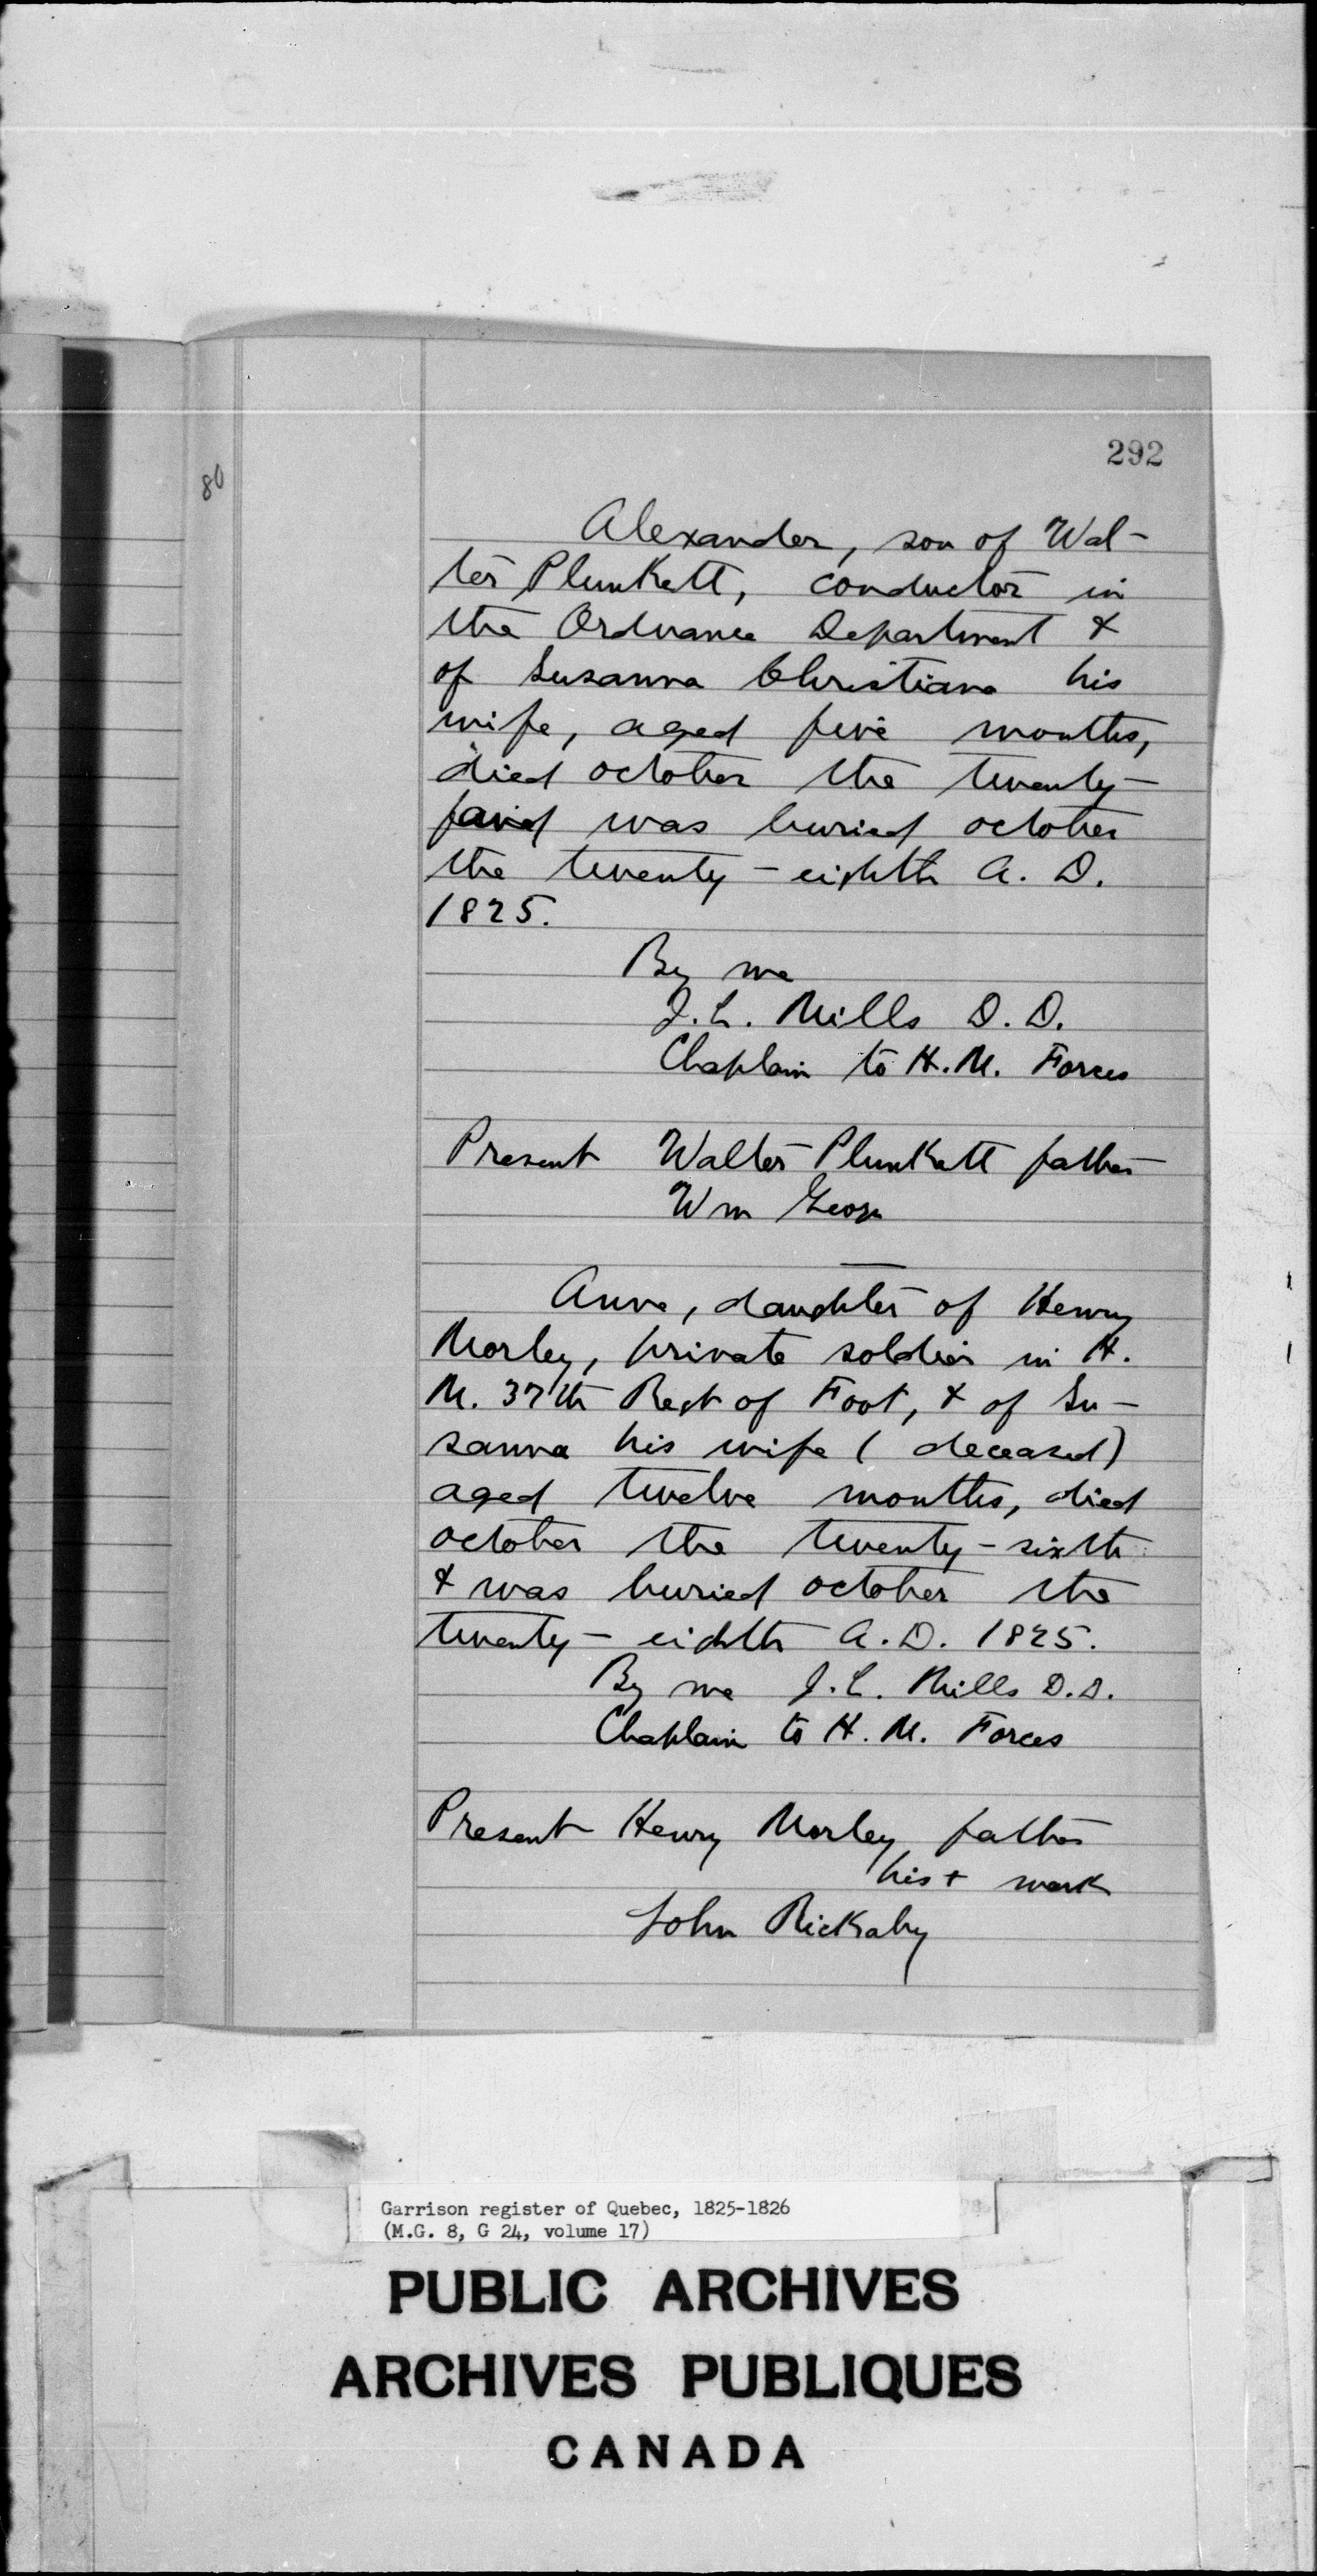 292
80
Alexander, son of Wal-
ter Plunkett, conductor in
the Ordnance Department &
of Susanna Christiana his
wife, aged five months,
died october the twenty-
and was buried october
the twenty-eighth A. D.
1825.
By me
J. L. Mills D. D.
Chaplain to H. M. Forces
Present Walter Plunkett father
Wm
Anne, daughter of Henry
Morley, private soldier in H.
M. 37th Regt of Foot, & of Su-
sanna his wife (deceased)
aged twelve months, died
october the twenty-sixth
& was buried october the
twenty-eighth A. D. 1825.
By me J. L. Mills D. D.
Chaplain to H. M. Forces
Present Henry Morley father
his + mark
John Rickaby
Garrison register of Quebec, 1825-1826
(M.G. 8, G 24, volume 17)
PUBLIC ARCHIVES
ARCHIVES PUBLIQUES
CANADA